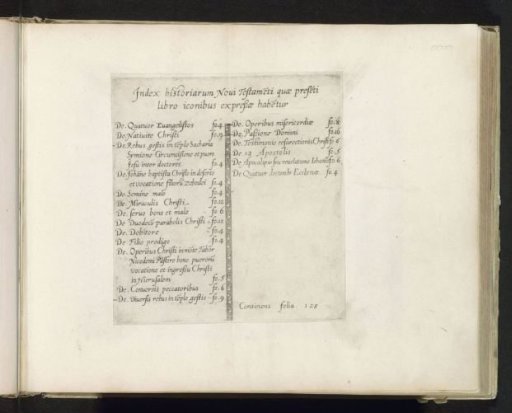 Index historiarum Noui Testamēti quæ presēti
libro iconibus expressæ habētur
De Quatuor Euangelistis fo.4
De Natiuite Christi fo.9
De Rebus gestis in tēplo Zacharia
Symione Circumcisione et puero
Iesu inter doctores fo.4
De Iohāne baptista Christi in deserto
et vocatione filiorū Zebedei fo.4
De Semine malo fo.4
De Miraculis Christi fo.12
De seruo bono et malo fo.6
De Duodecī parabolis Christi fo.12
De Debitore fo.4
De Filio prodigo fo.4
De Operibus Christi in mōte Tabor
Nicodemi Pastore bono puerorū
vocatione et ingressu Christi
in Hierusalem fo.5
De Conuersis peccatoribus fo.6
De Diuersis rebus in tēplo gestis fo.9
De Operibus misericordiæ fo.8
De Passione Domini
De Testimonio resurectionis Christi fo.6
De 12 Apostolis
De Apocalipsi seu reuelatione fo.6
De Quatuor Ecclesiæ fo.4
Continens folia 128